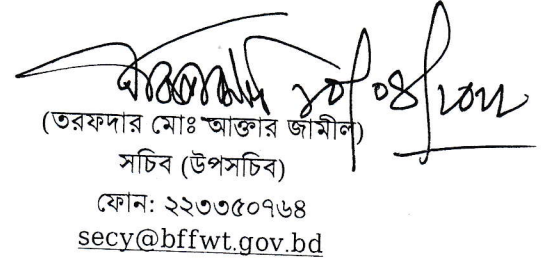 ১০/০৪/২০২২
(তরফদার মোঃ আক্তার জামীল)
সচিব (উপসচিব)
ফোন: ২২৩৩৫০৭৬৪
secy@bffwt.gov.bd